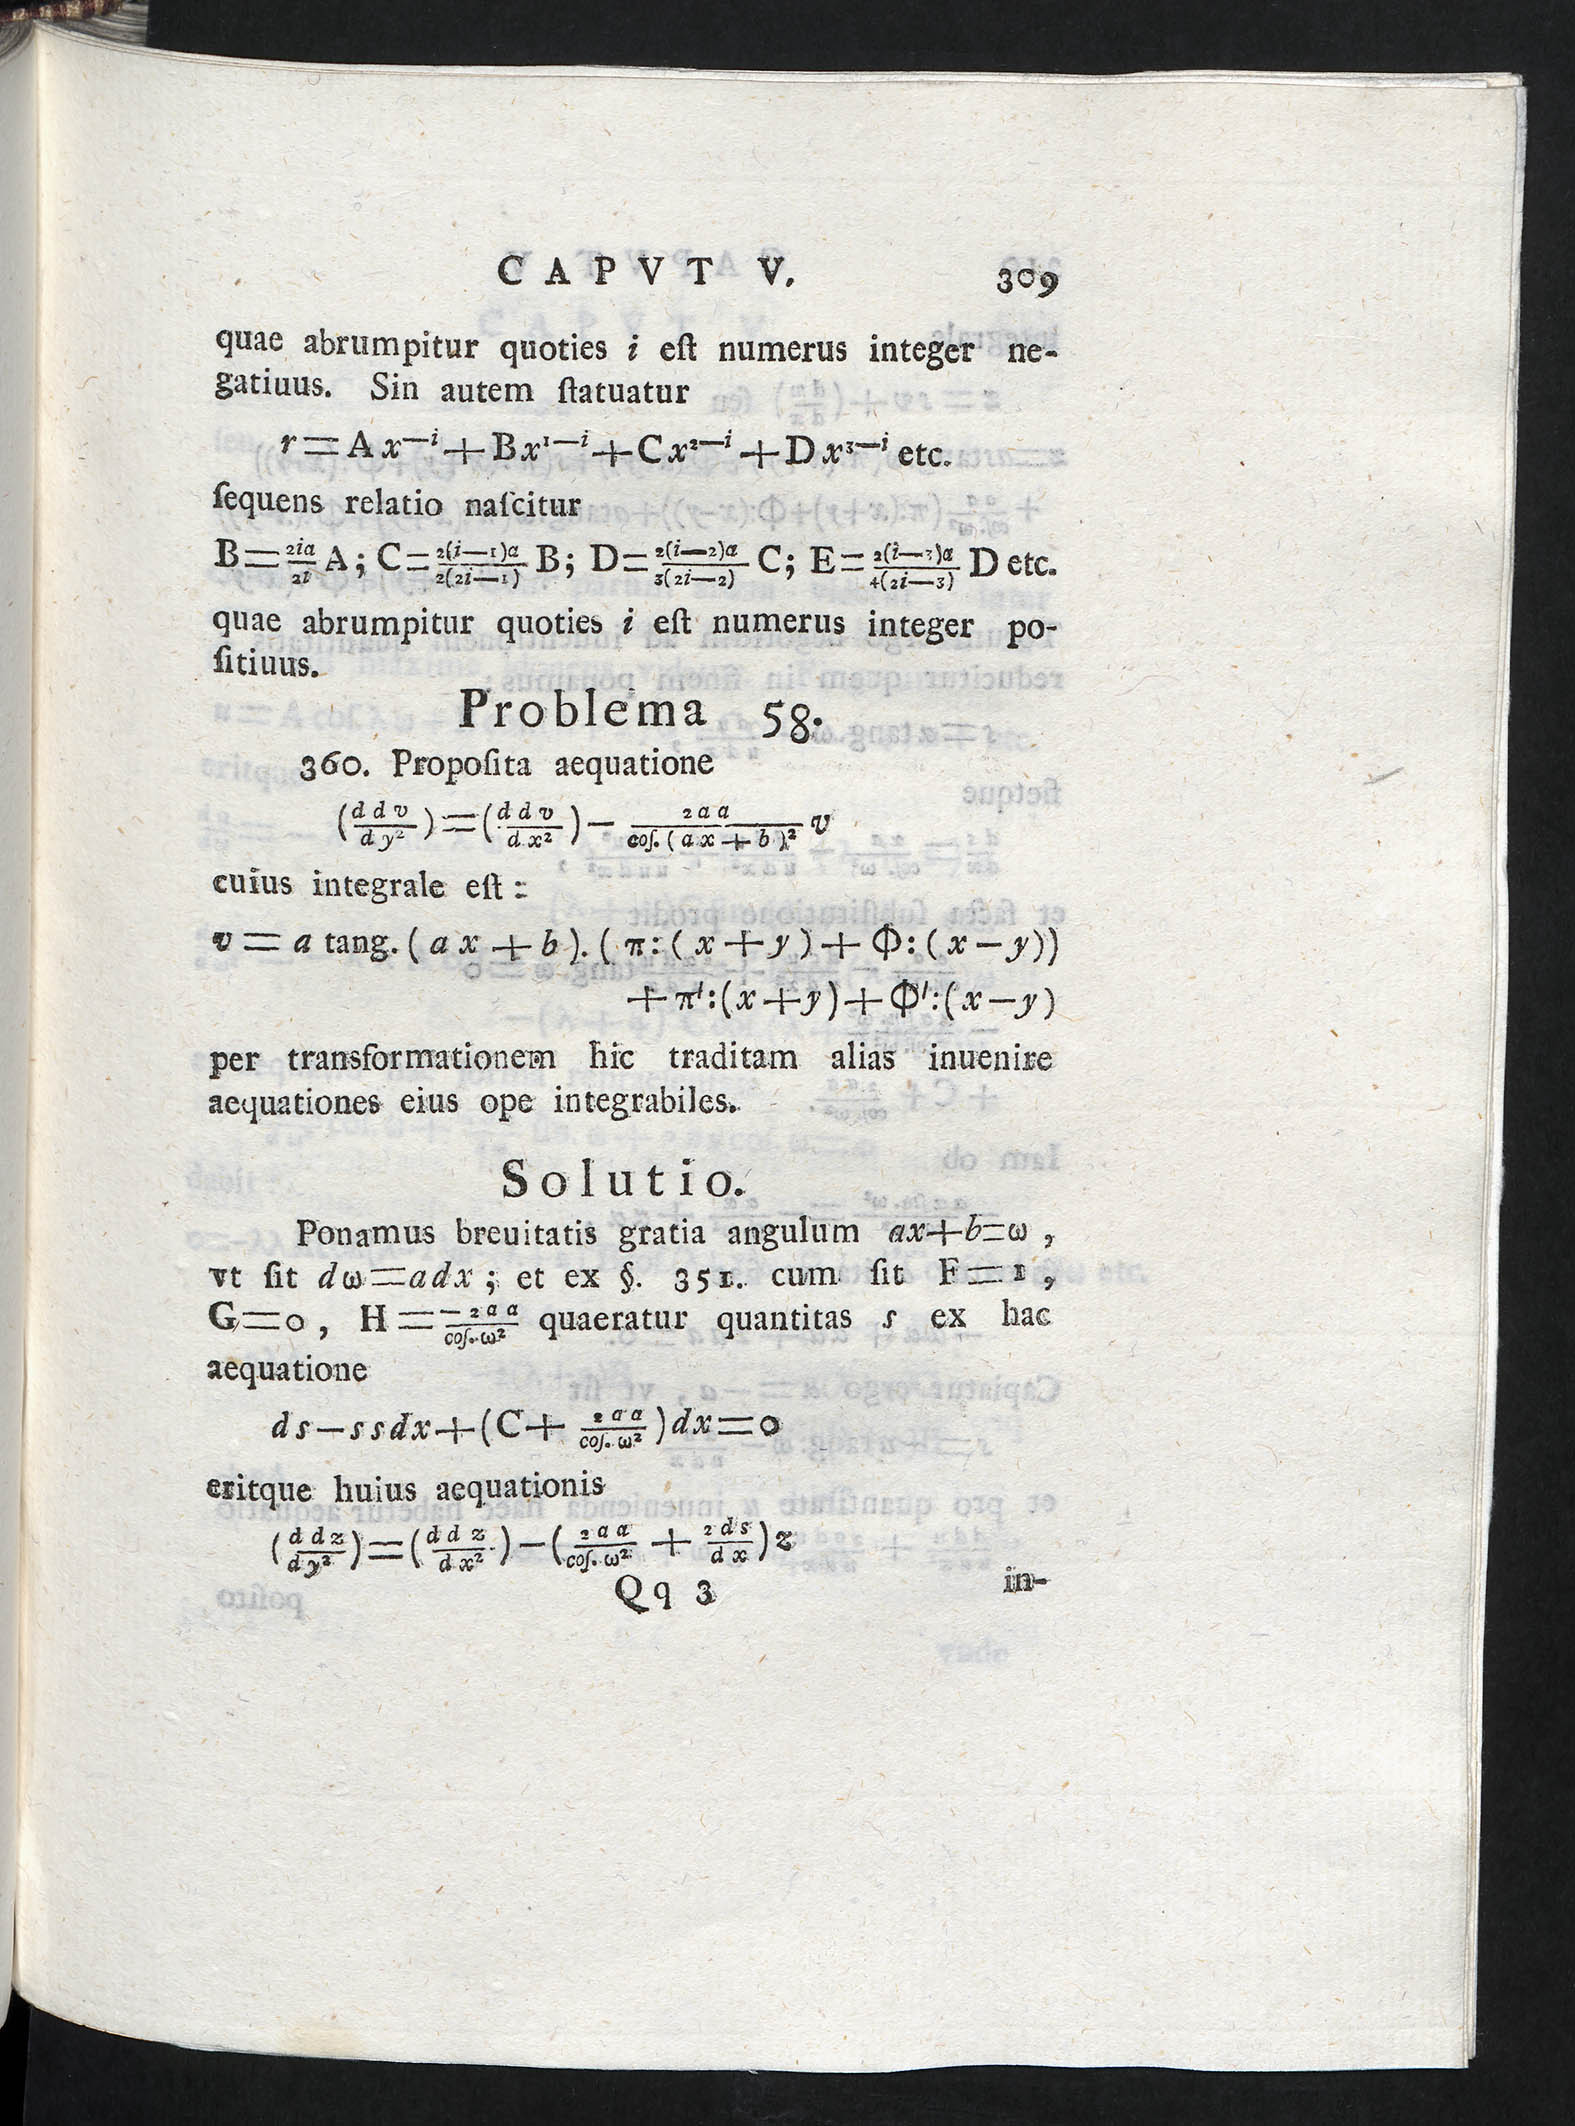 CAPVT V. 309
quae abrumpitur quoties i eſt numerus integer ne-
gatiuus. Sin autem ſtatuatur
r = A x^{—i} + B x^{1—i} + C x^{2—i} + D x^{3—i} etc.
ſequens relatio naſcitur
B = \frac{2ia}{2i} A ; C = \frac{2(i—1)a}{2(2i—1)} B ; D = \frac{2(i—2)a}{3(2i—2)} C ; E = \frac{2(i—3)a}{4(2i—3)} D etc.
quae abrumpitur quoties i eſt numerus integer po-
ſitiuus.
Problema 58.
360. Propoſita aequatione
(\frac{d d v}{d y^2}) = (\frac{d d v}{d x^2}) — \frac{2 a a}{coſ. (a x + b)^2} v
cuius integrale eſt :
v = a tang. ( a x + b ). ( π : ( x + y ) + Φ : ( x — y ))
+ π' : ( x + y ) + Φ' : ( x — y )
per transformationem hic traditam alias inuenire
aequationes eius ope integrabiles.
Solutio.
Ponamus breuitatis gratia angulum ax+b=ω ,
vt ſit dω = adx ; et ex §. 351. cum ſit F = 1 ,
G = 0 , H = \frac{— 2 a a}{coſ. ω^2} quaeratur quantitas s ex hac
aequatione
ds — ssdx + (C + \frac{2 a a}{coſ. ω^2}) dx = 0
eritque huius aequationis
(\frac{d d z}{d y^2}) = (\frac{d d z}{d x^2}) — (\frac{2 a a}{coſ. ω^2} + \frac{2 d s}{d x}) z
Qq 3 in-